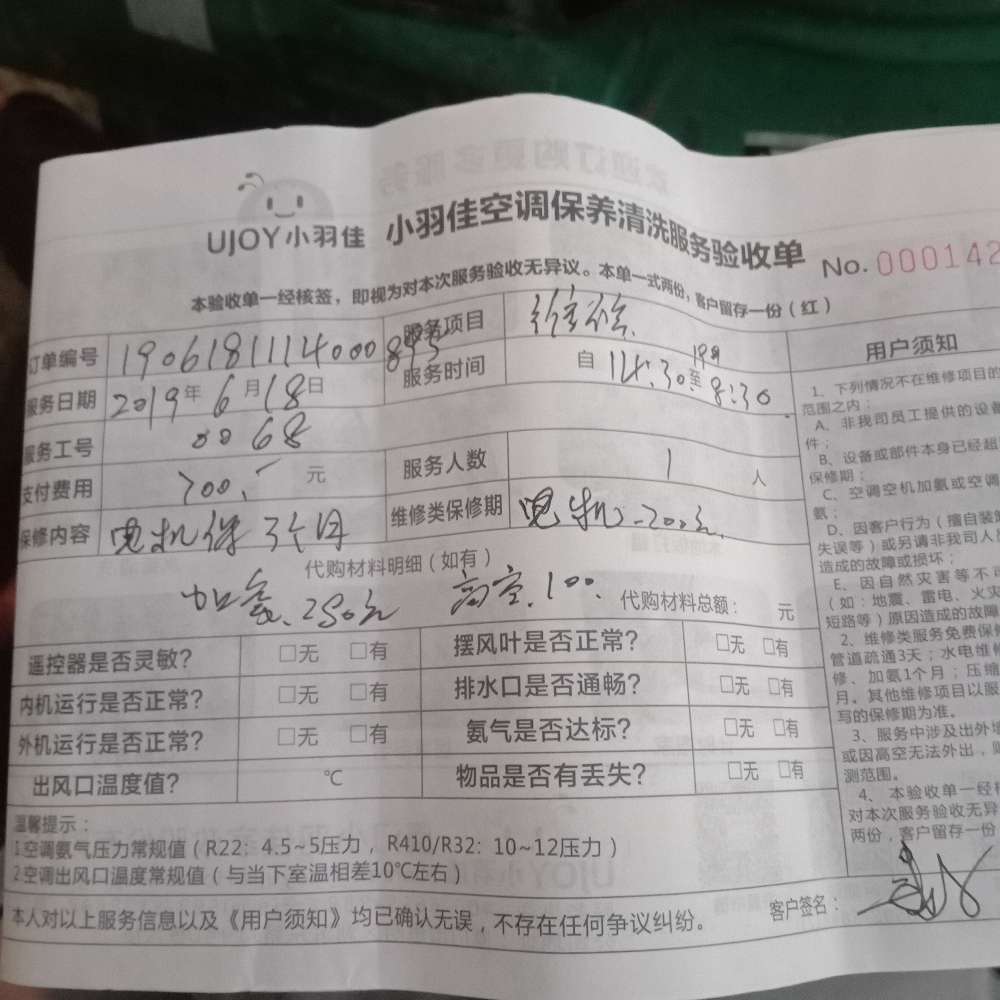 UJOY小羽佳 小羽佳空调保养清洗服务验收单 No. 000142
本验收单一经核签，即视为对本次服务验收无异议。本单一式两份，客户留存一份（红）
订单编号 1906181114000895 服务项目
服务日期 2019年6月18日 服务时间 自 14:30至 8:30
服务工号 0068
支付费用 700. 元 服务人数 1 人
保修内容 电机保3个月 维修类保修期 电机 200元
代购材料明细（如有）
加氨.250元 高空.100. 代购材料总额： 元
遥控器是否灵敏？ □无 □有 摆风叶是否正常？ □无 □有
内机运行是否正常？ □无 □有 排水口是否通畅？ □无 □有
外机运行是否正常？ □无 □有 氨气是否达标？ □无 □有
出风口温度值？ ℃ 物品是否有丢失？ □无 □有
温馨提示：
1.空调氨气压力常规值（R22：4.5~5压力，R410/R32：10~12压力）
2.空调出风口温度常规值（与当下室温相差10℃左右）
本人对以上服务信息以及《用户须知》均已确认无误，不存在任何争议纠纷。 客户签名：
用户须知
1、下列情况不在维修项目的
范围之内：
A、非我司员工提供的设备
件；
B、设备或部件本身已经超
保修期；
C、空调空机加氨或空调
氨；
D、因客户行为（擅自装
失误等）或另请非我司人
造成的故障或损坏；
E、因自然灾害等不可
（如：地震、雷电、火灾
短路等）原因造成的故障
2、维修类服务免费保
管道疏通3天；水电维修
修、加氨1个月；压缩
月。其他维修项目以服
写的保修期为准。
3、服务中涉及出外墙
或因高空无法外出，
测范围。
4、本验收单一经核
对本次服务验收无异
两份，客户留存一份